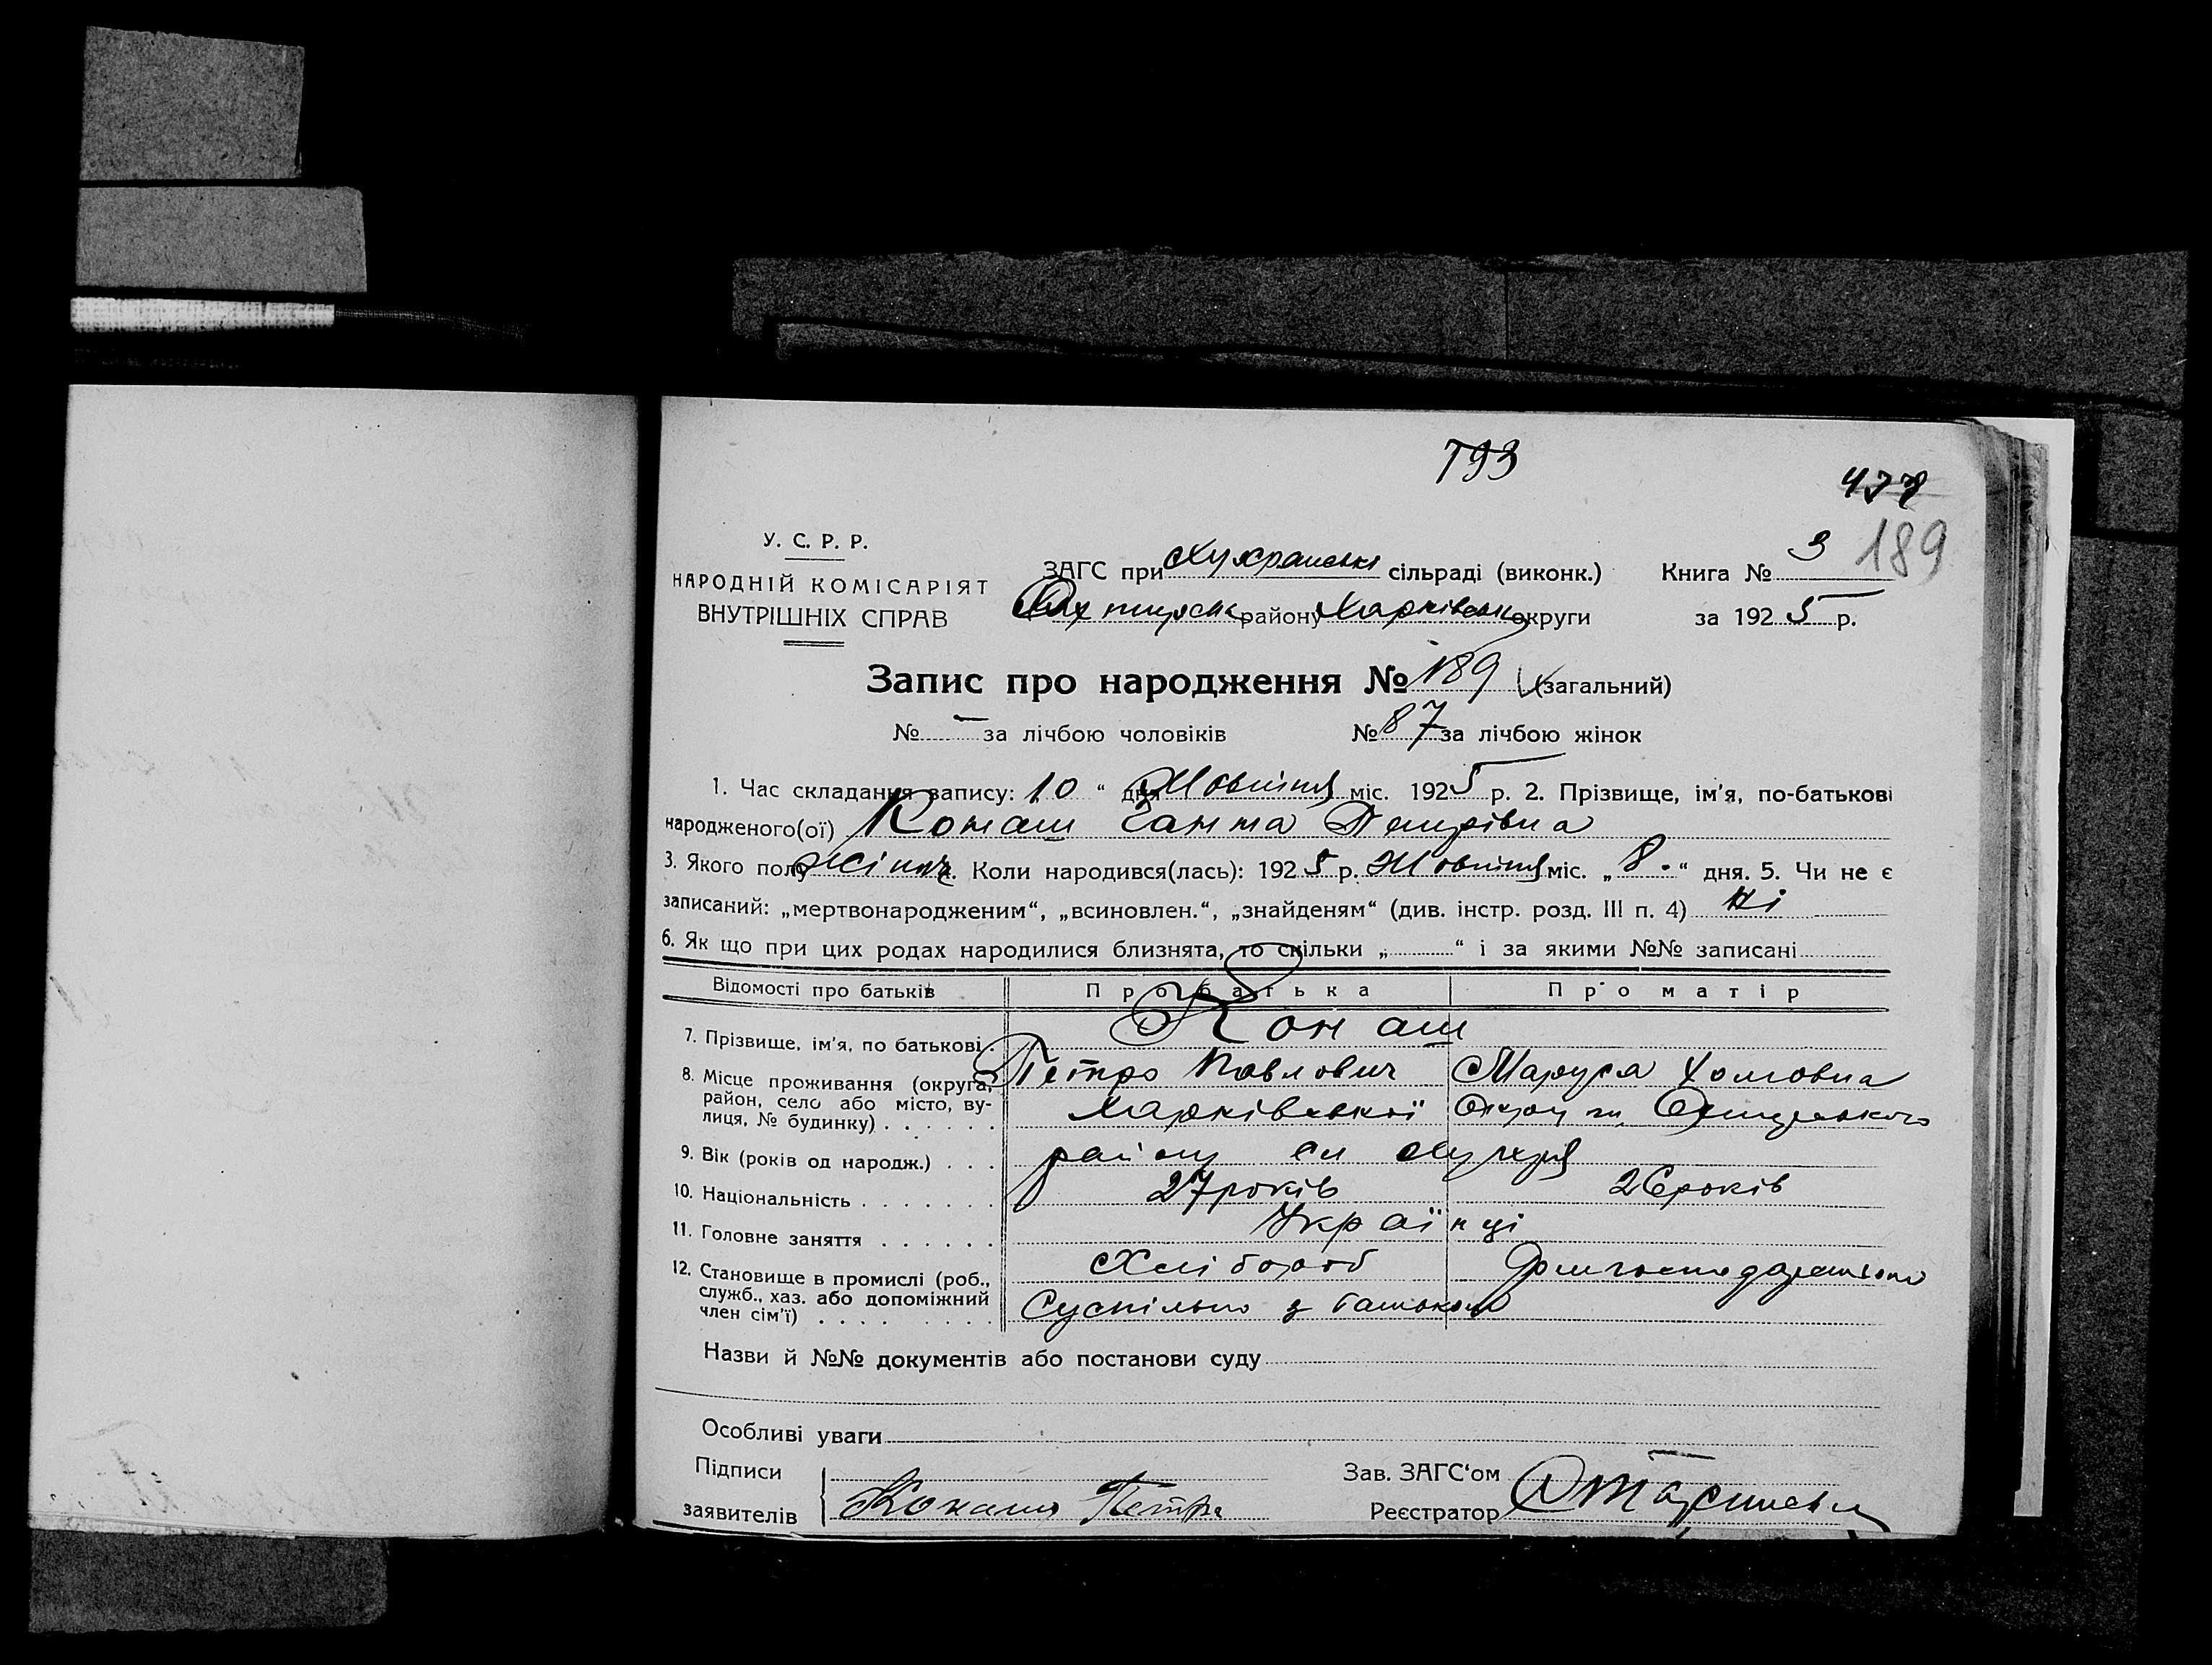 793
477
У. С. Р. Р.
НАРОДНІЙ КОМІСАРІЯТ
ВНУТРІШНІХ СПРАВ
ЗАГС при Хухранські сільраді (виконк.)
Охтирськ району Харківськ округи
Книга № 3 189
за 1925 р.
Запис про народження № 189 (загальний)
№ - за лічбою чоловіків № 87 за лічбою жінок
1. Час складання запису: 10 “ дня Жовтня міс. 1925 р. 2. Прізвище, ім'я, по-батькові
народженого(ої) Конаш Ганна Петрівна
3. Якого полу жіноч. Коли народився(лась): 1925 р. Жовтня міс. „ 8. “ дня. 5. Чи не є
записаний: „мертвонародженим“, „всиновлен.“, „знайденям“ (див. інстр. розд. III п. 4) Ні
6. Як що при цих родах народилися близнята, то скільки „ “ і за якими №№ записані
Відомості про батьків Про батька Про матір
7. Прізвище, ім'я, по батькові. Конаш
Петро Павлович Маруся Хомовна
8. Місце проживання (округа, район, село або місто, вулиця, № будинку) Харківської Округи, Охтирського
району сл Хухря
9. Вік (років од народж.) 27 років 26 років
10. Національність Українці
11. Головне заняття Хлібороб
12. Становище в промислі (роб., служб., хаз. або допоміжний член сім'ї) Суспільно з батьком
Назви й №№ документів або постанови суду
Особливі уваги
Підписи
заявителів Конаш Петро
Зав. ЗАГС'ом
Реєстратор